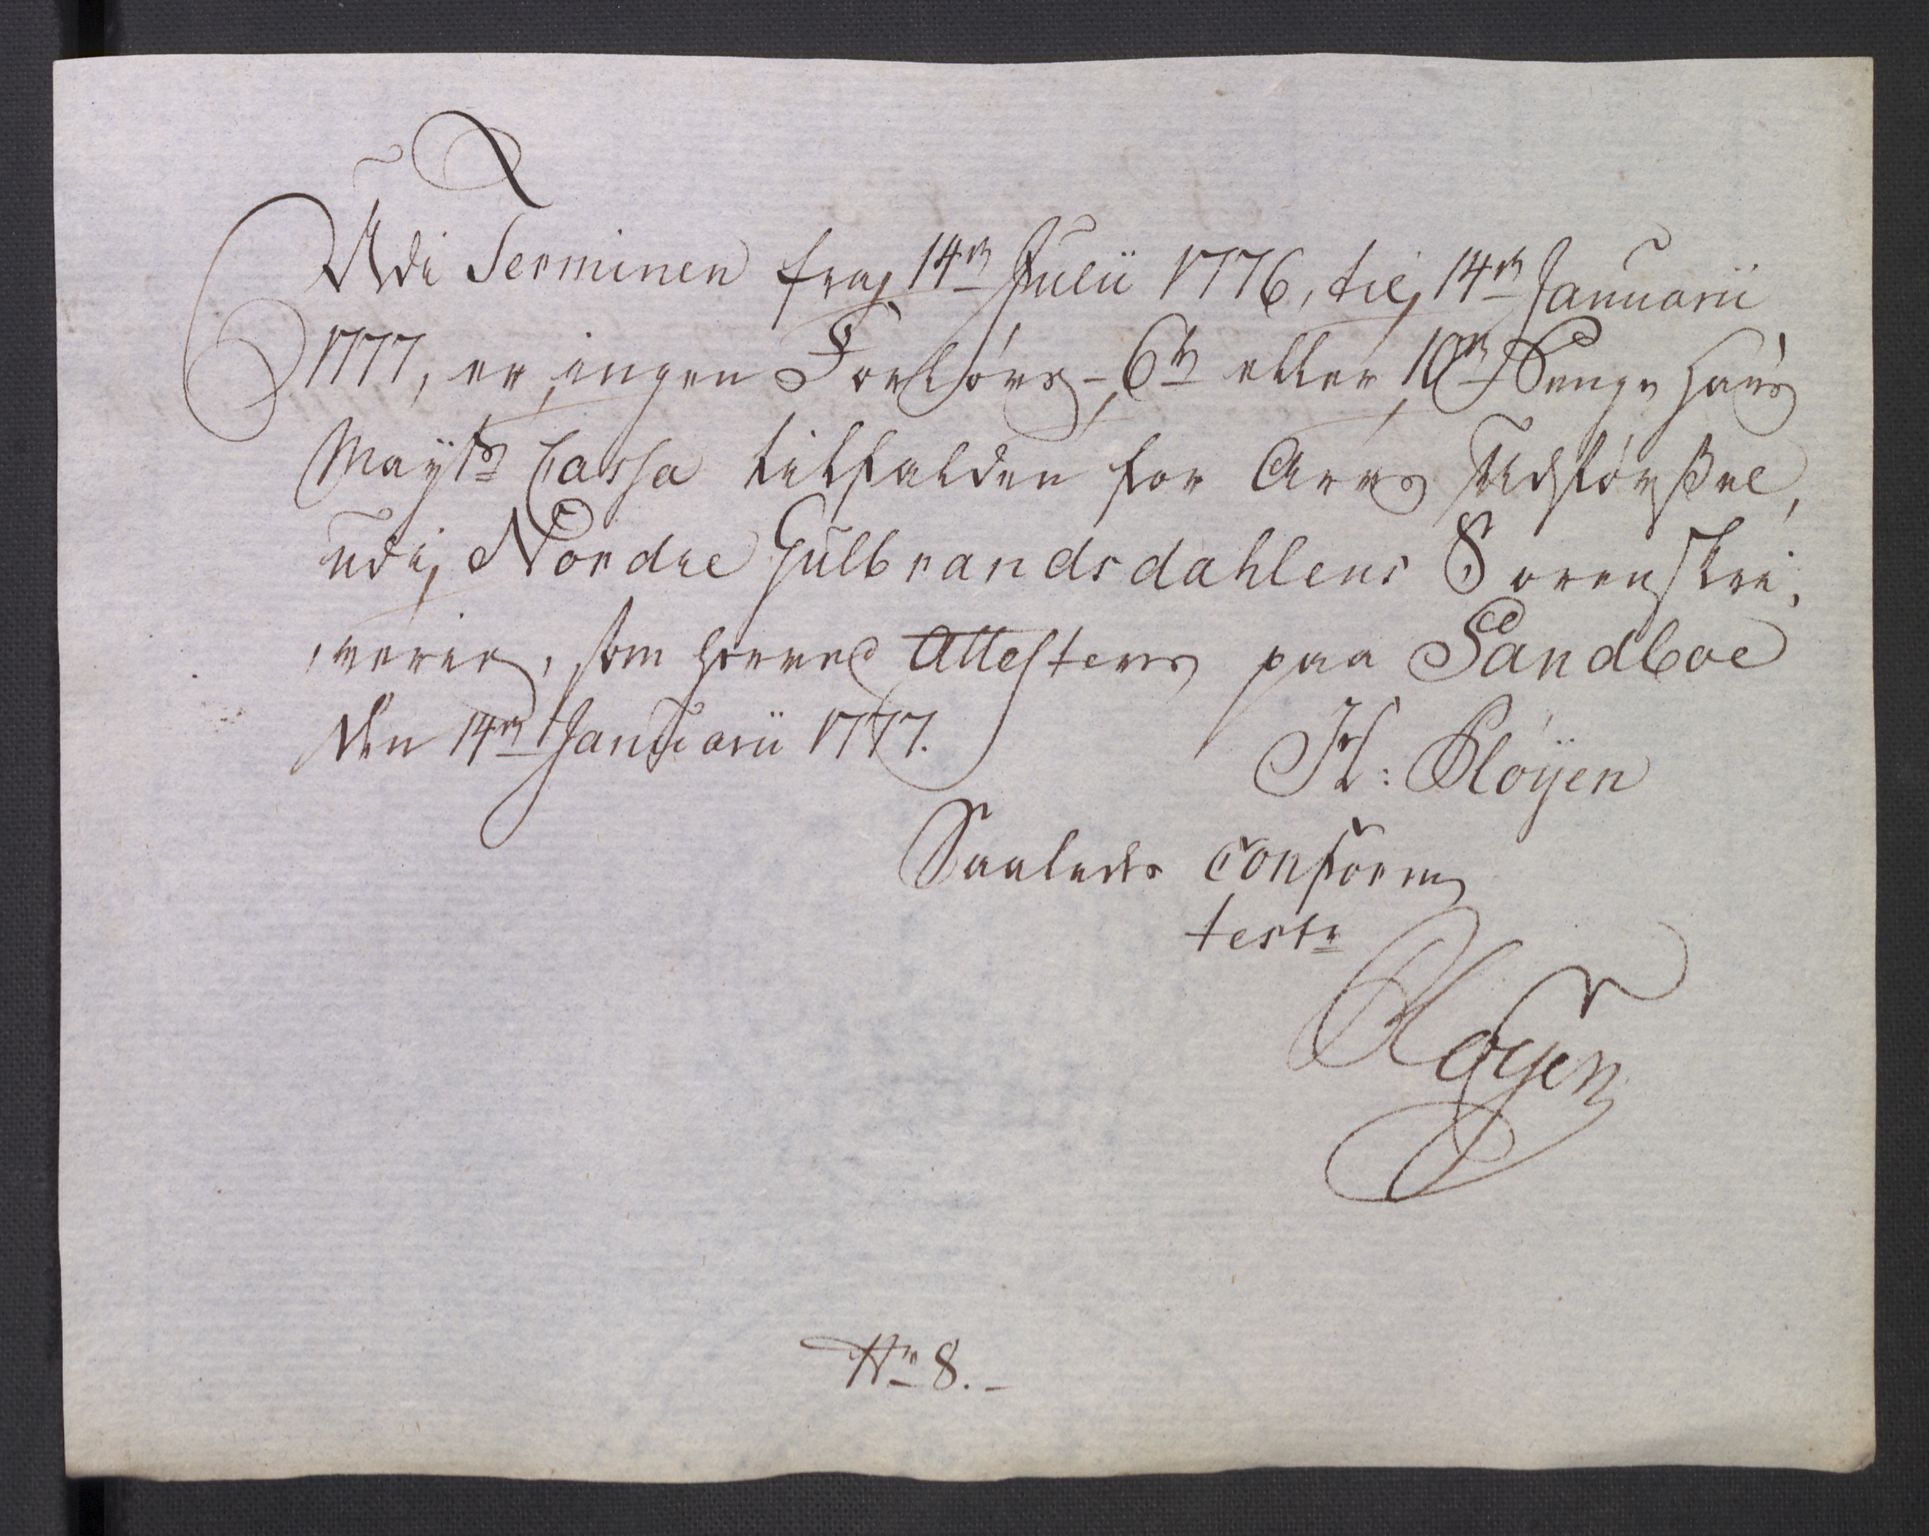 Udi Terminen fra 14de Julii 1776, til 14de Januarii
1777, er ingen Forlovs- 6te eller 10de Penge Hans
Mayts Cassa tilfalden for Arvs Udførsel,
udi Nordre Gulbrandsdahlens Sorenskri,
,verie, som herved Attesteres paa Sandboe
den 14de Januarii 1777.
H: Pløyen
Saaledes conform
teste
Pløyen
No 8.